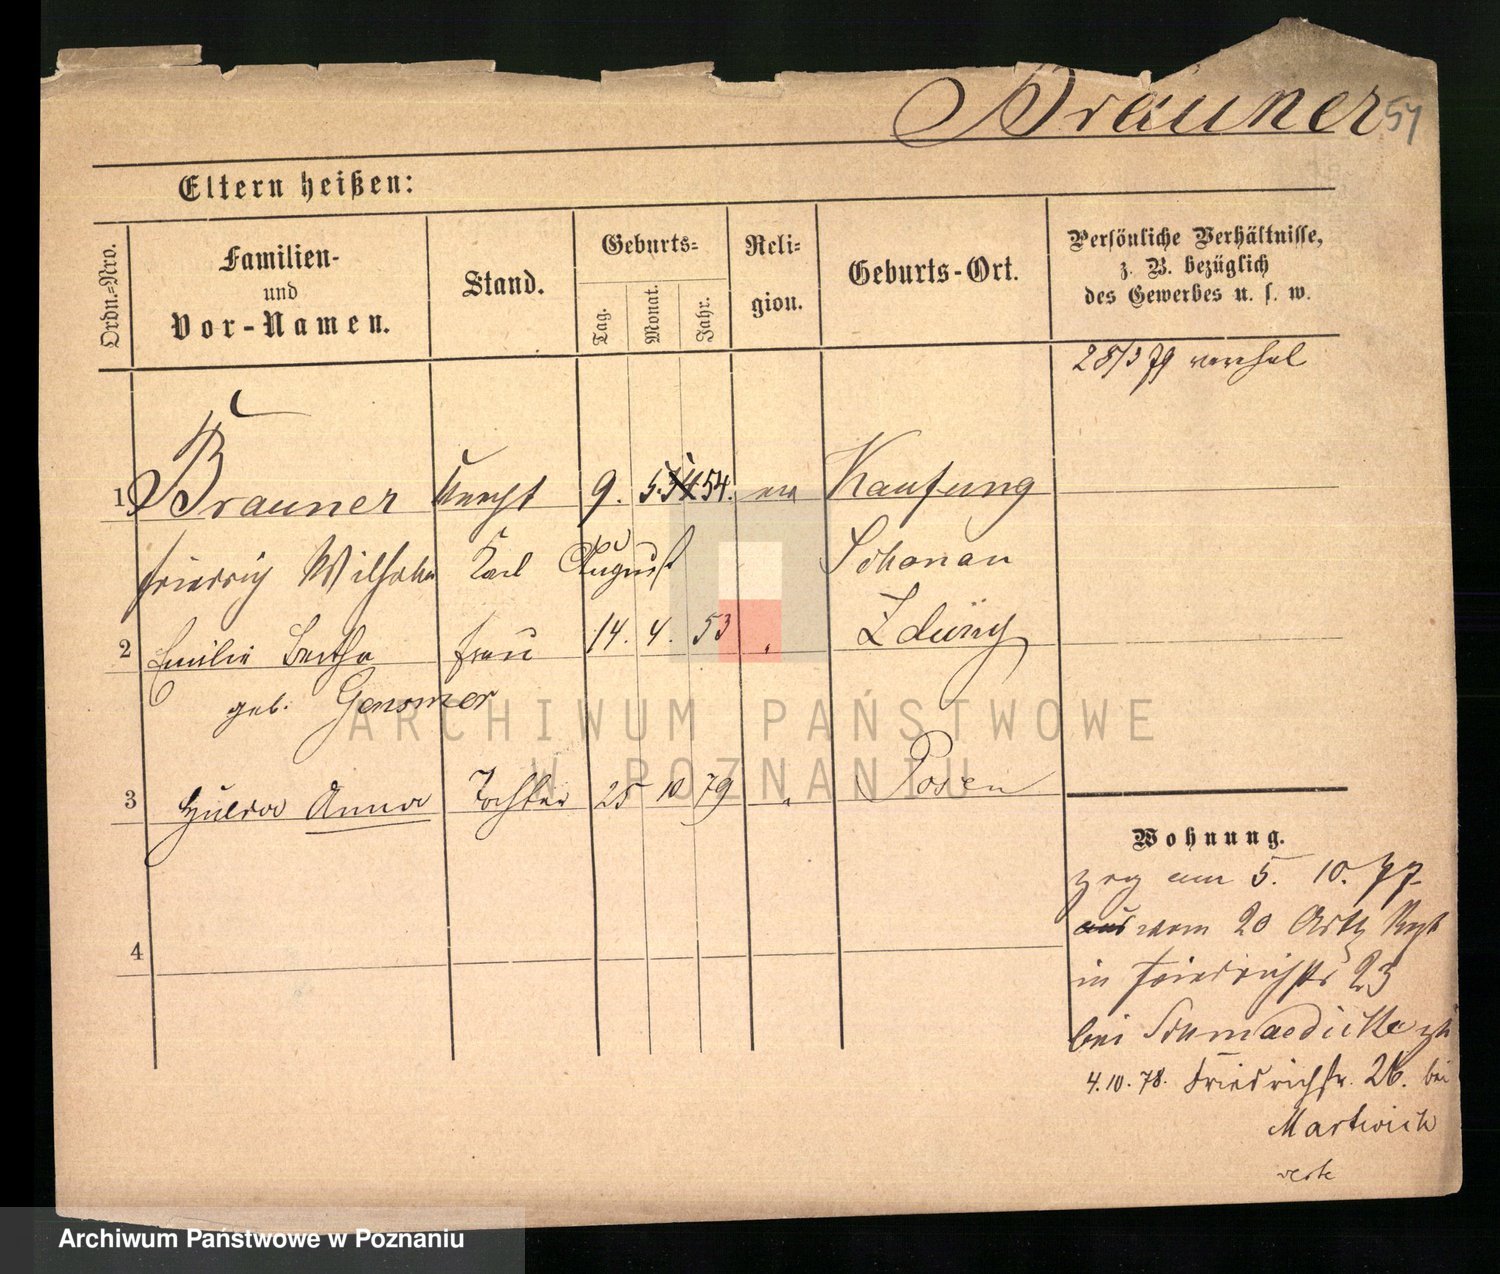 Brauner 51
Eltern heißen:
Ordn.-Nro.
Familien-
und
Vor-Namen.
Stand.
Geburts-
Tag.
Monat.
Jahr.
Reli-
gion.
Geburts-Ort.
Persönliche Verhältnisse,
z. B. bezüglich
des Gewerbes u. s. w.
28/3 79
1 Brauner Knecht 9. 5. 54. ev Kaufung
Friedrich Wilhelm Karl August Schonau
2 Emilie Bertha Frau 14. 4. 53 " Zduny
geb. Gensmer
3 Hulda Anna Tochter 25 10 79 " Posen
4
Wohnung.
zog am 5. 10. 77
aus vom 20 Art Rgt
in Friedrichstr 23
bei Schmaedicke
4.10.78. Friedrichstr. 26. bei
Martwich
ARCHIWUM PAŃSTWOWE
W POZNANIU
Archiwum Państwowe w Poznaniu